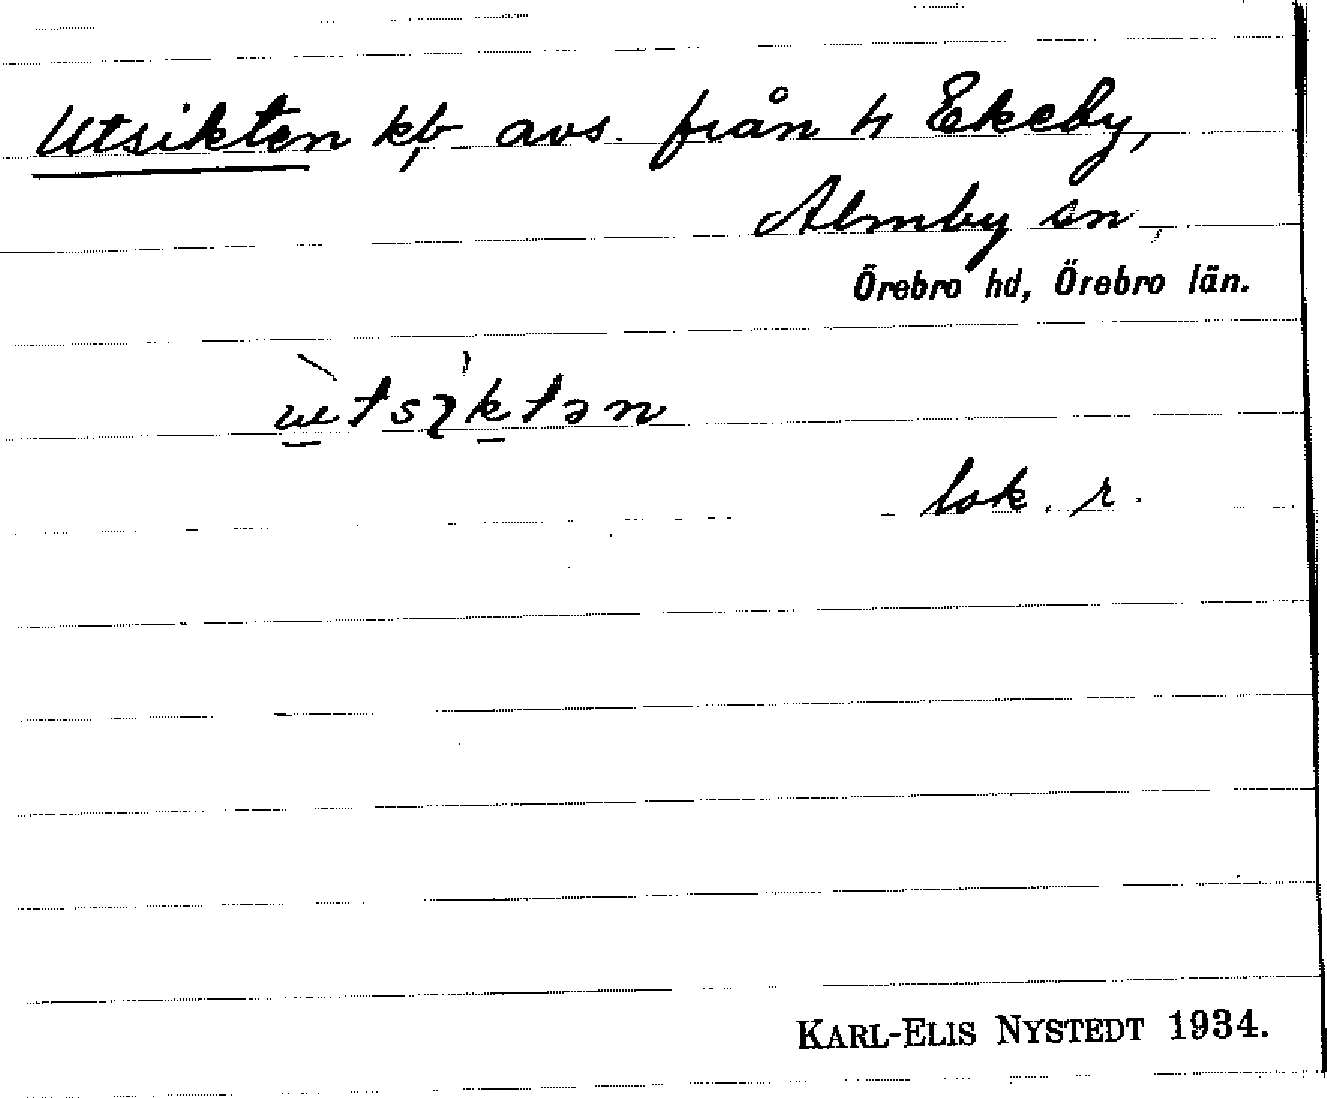 Utsikten kb avs. från h Ekeby,
Almby sn,
Örebro hd, Örebro län.
lok. r.
KARL-ELIS NYSTEDT 1934.